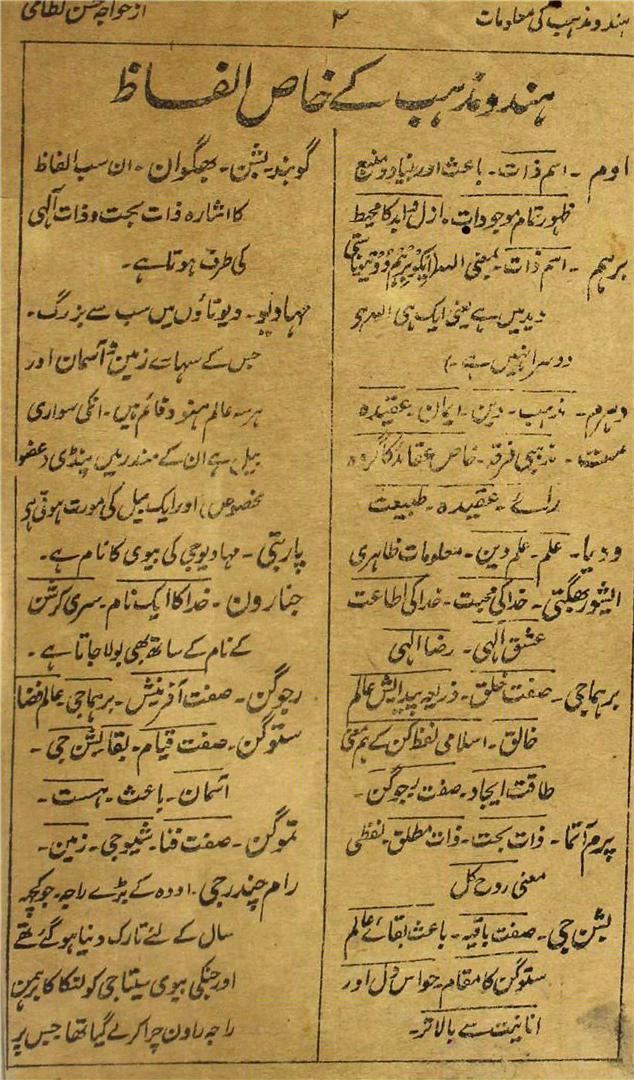 ہندو مذہب کی معلومات
۲
از خواجہ حسن نظامی
ہندو مذہب کے خاص الفاظ
اوم ۔ اسم ذات ۔ باعث اور بنیاد و منبع
ظہور تمام موجودات ۔ ازل و ابد کا محیط
برہم ۔ اسم ذات ۔ بمعنی اللہ (ایکو برہم دوتیو ناستی
وید میں ہے یعنی ایک ہی اللہ ہے
دوسرا نہیں ہے ۔)
دہرم ۔ مذہب ۔ دین ۔ ایمان ۔ عقیدہ
مت ۔ مذہبی فرقہ ۔ خاص عقائد کا گروہ
رائے ۔ عقیدہ ۔ طبیعت
ودیا ۔ علم ۔ علم دین ۔ معلومات ظاہری
ایشور بھگتی ۔ خدا کی محبت ۔ خدا کی اطاعت
عشق الٰہی ۔ رضا الٰہی
برہما جی ۔ صفت خلق ۔ ذریعہ پیدایش عالم
خالق ۔ اسلامی لفظ کن کے ہم معنی
طاقت ایجاد ۔ صفت رجوگن ۔
پرم آتما ۔ ذات بحت ۔ ذات مطلق ۔ لفظی
معنی روح کل
بشن جی ۔ صفت باقیہ ۔ باعث بقائے عالم
ستوگن کا مقام ۔ حواس دل اور
انانیت سے بالاتر ۔
گوبند بشن ۔ بھگوان ۔ ان سب الفاظ
کا اشارہ ذات بحت و ذات الٰہی
کی طرف ہوتا ہے ۔
مہادیو ۔ دیوتاؤں میں سب سے بزرگ ۔
جس کے سہارے زمین و آسمان اور
ہر سہ عالم ہنود قائم ہیں ۔ انکی سواری
بیل ہے ان کے مندر میں پنڈی (عضو
مخصوص) اور ایک بیل کی مورت ہوتی ہے
پاربتی ۔ مہادیو جی کی بیوی کا نام ہے ۔
جناردن ۔ خدا کا ایک نام ۔ سری کرشن
کے نام کے ساتھ بھی بولا جاتا ہے ۔
رجوگن ۔ صفت آفرینش ۔ برہما جی ۔ عالم فضا
ستوگن ۔ صفت قیام ۔ بقا بشن جی ۔
آسمان ۔ باعث ۔ ہست ۔
تموگن ۔ صفت فنا ۔ شیوجی ۔ زمین ۔
رام چندر جی ۔ اودہ کے بڑے راجہ ۔ جو کچھ
سال کے لئے تارک دنیا ہو گئے تھے
اور جنکی بیوی سیتا جی کو لنکا کا برہمن
راجہ راون چرا کر لے گیا تھا جس پر